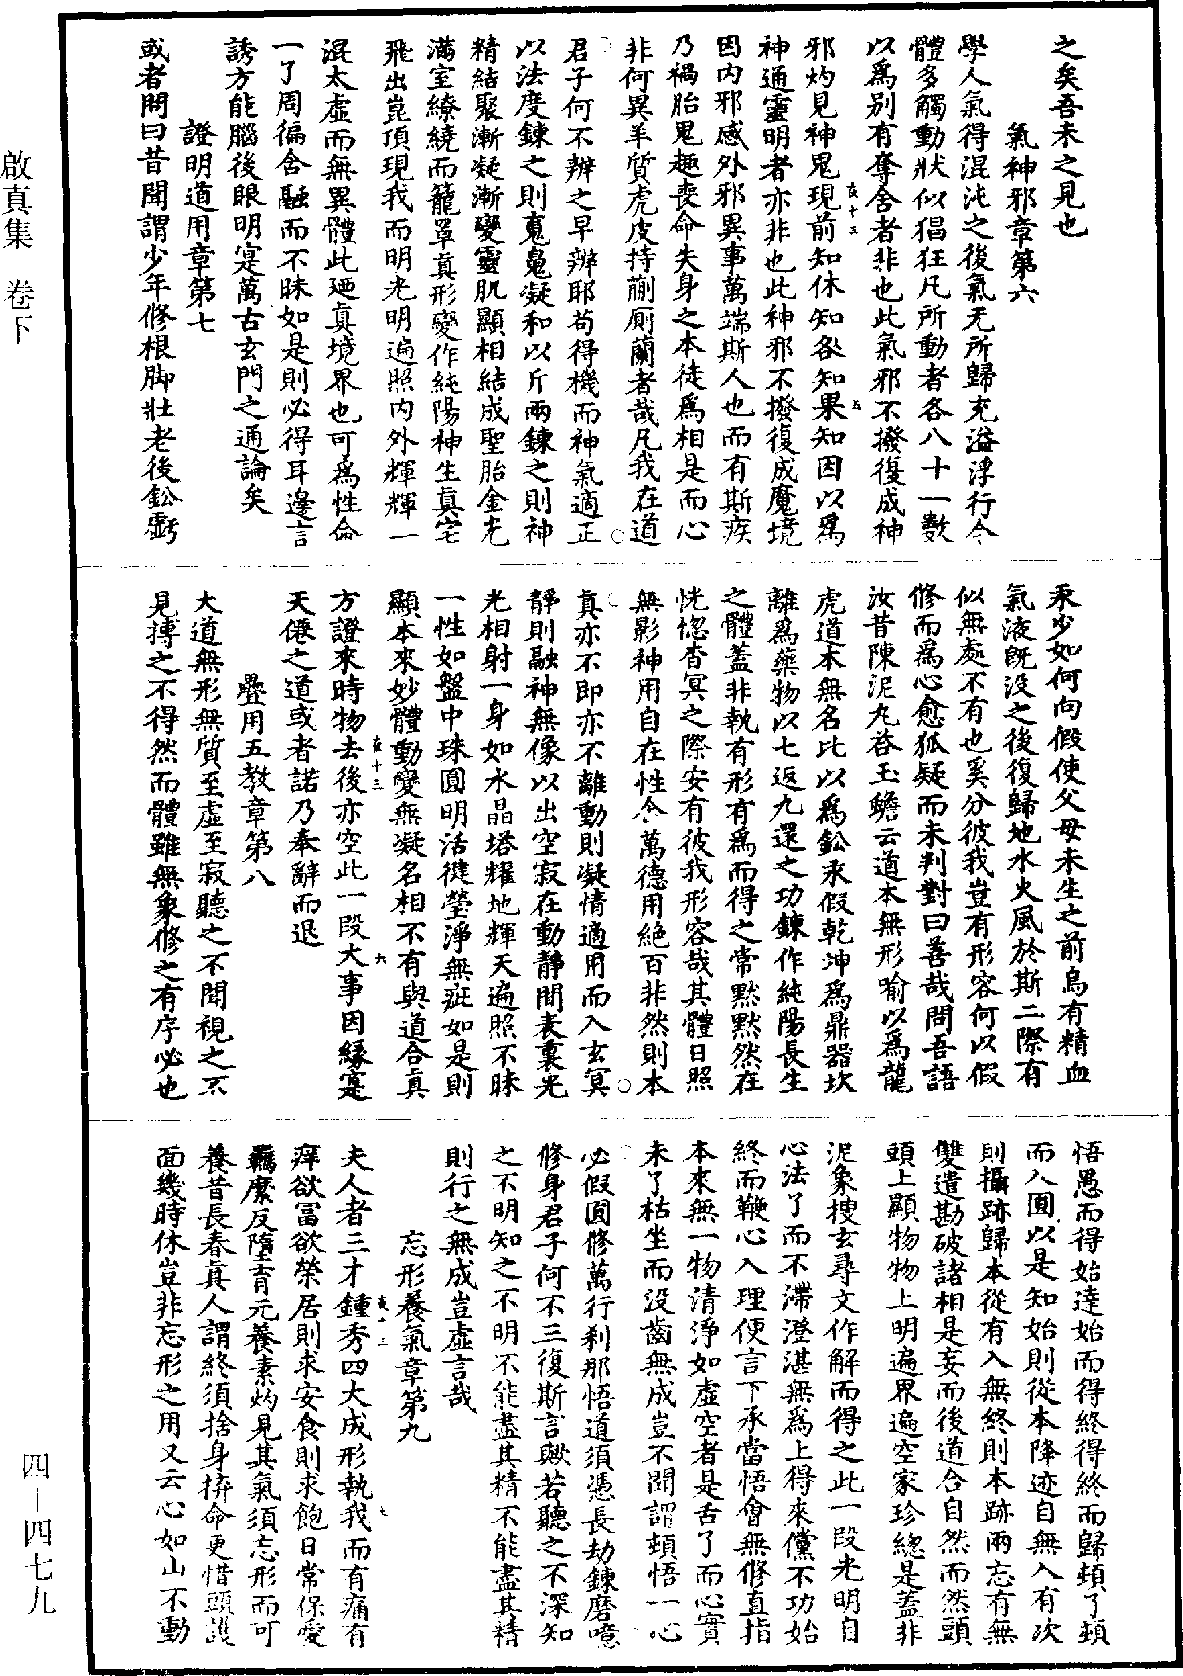 之矣吾未之見也
氣神邪章第六
學人氣得混沌之後氣无所歸充溢浮行令
體多觸動狀似猖狂凡所動者各八十一數
以爲别有奪舍者非也此氣邪不撥復成神
邪灼見神鬼現前知休知咎知果知因以爲
神通靈明者亦非也此神邪不撥復成魔境
因内邪感外邪異事萬端斯人也而有斯疾
乃禍胎鬼趣喪命失身之本徒爲相是而心
非何異羊質虎皮持蒯廁蘭者哉凡我在道
君子何不辨之早辨耶苟得機而神氣適正
以法度鍊之則䰟䰟凝和以斤兩鍊之則神
精結聚漸凝漸變靈肌顯相結成聖胎金光
滿室繚繞而籠罩真形變作純陽神生真宅
飛出崑頂現我而明光明遍照内外輝輝一
混太虛而無異體此廼真境界也可爲性命
一了周徧含融而不昧如是則必得耳邊言
誘方能腦後眼明寔萬古玄門之通論矣
證明道用章第七
或者問曰昔聞謂少年修根脚壯老後鈆虧
汞少如何向假使父母未生之前烏有精血
氣液旣没之後復歸地水火風於斯二際有
似無處不有也奚分彼我豈有形容何以假
修而爲心愈狐疑而未判對曰善哉問吾語
汝昔陳泥丸荅玉蟾云道本無形喻以爲龍
虎道本無名比以爲鈆汞假乾坤爲鼎器坎
離爲藥物以七返九還之功鍊作純陽長生
之體蓋非執有形有爲而得之常默默然在
恍惚杳冥之際安有彼我形容哉其體日照
無影神用自在性含萬德用絕百非然則本
真亦不即亦不離動則凝情適用而入玄冥
靜則融神無像以出空寂在動靜間表裏光
光相射一身如水晶塔耀地輝天遍照不昧
一性如盤中珠圓明活健瑩淨無疵如是則
顯本來妙體動變無凝名相不有與道合真
方證來時物去後亦空此一段大事因緣寔
天僊之道或者諾乃奉辭而退
疊用五教章第八
大道無形無質至虛至寂聽之不聞視之不
見摶之不得然而體雖無象修之有序必也
悟愚而得始達始而得終得終而歸頓了頓
而入圓以是知始則從本降迹自無入有次
則攝跡歸本從有入無終則本跡兩忘有無
雙遣勘破諸相是妄而後道合自然而然頭
頭上顯物物上明遍界遍空家珍總是蓋非
泥象椄玄尋文作解而得之此一段光明自
心法了而不滯澄湛無爲上得來儻不功始
終而鞭心入理便言下承當悟會無修直指
本來無一物清淨如虛空者是舌了而心實
未了枯坐而没齒無成豈不聞謂頓悟一心
必假圓修萬行刹那悟道須憑長劫鍊磨噫
修身君子何不三復斯言歟若聽之不深知
之不明知之不明不能盡其精不能盡其精
則行之無成豈虛言哉
忘形養氣章第九
夫人者三才鍾秀四大成形執我而有痛有
痒欲冨欲榮居則求安食則求飽日常保愛
羈縻反墮育元養素灼見其氣須忘形而可
養昔長春真人謂終須捨身拚命更惜頭護
面幾時休豈非忘形之用又云心如山不動
啟真集　卷下
四—四七九